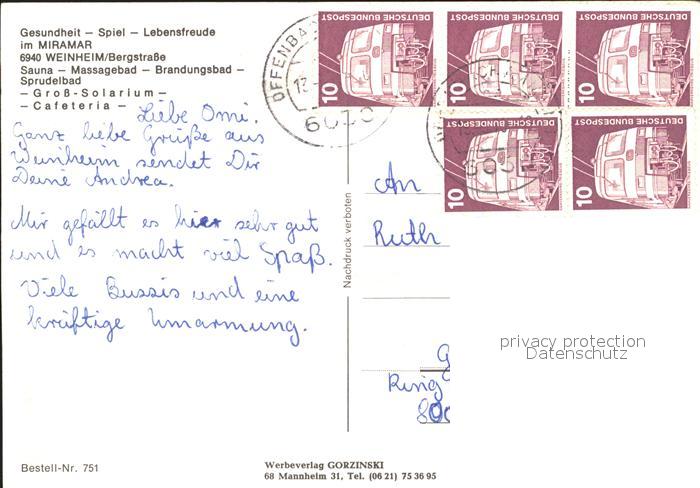 Gesundheit – Spiel – Lebensfreude
im MIRAMAR
6940 WEINHEIM/Bergstraße
Sauna – Massagebad – Brandungsbad –
Sprudelbad
– Groß-Solarium –
– Cafeteria –
Liebe Omi.
Ganz liebe Grüße aus
Weinheim sendet Dir
Deine Andrea.
Mir gefällt es hier sehr gut
und es macht viel Spaß.
Viele Bussis und eine
kräftige Umarmung.
Bestell-Nr. 751
Nachdruck verboten
Werbeverlag GORZINSKI
68 Mannheim 31, Tel. (06 21) 75 36 95
DEUTSCHE BUNDESPOST
10
DEUTSCHE BUNDESPOST
10
DEUTSCHE BUNDESPOST
10
10
10
6050
An
Ruth
G
Ring
800
privacy protection
Datenschutz